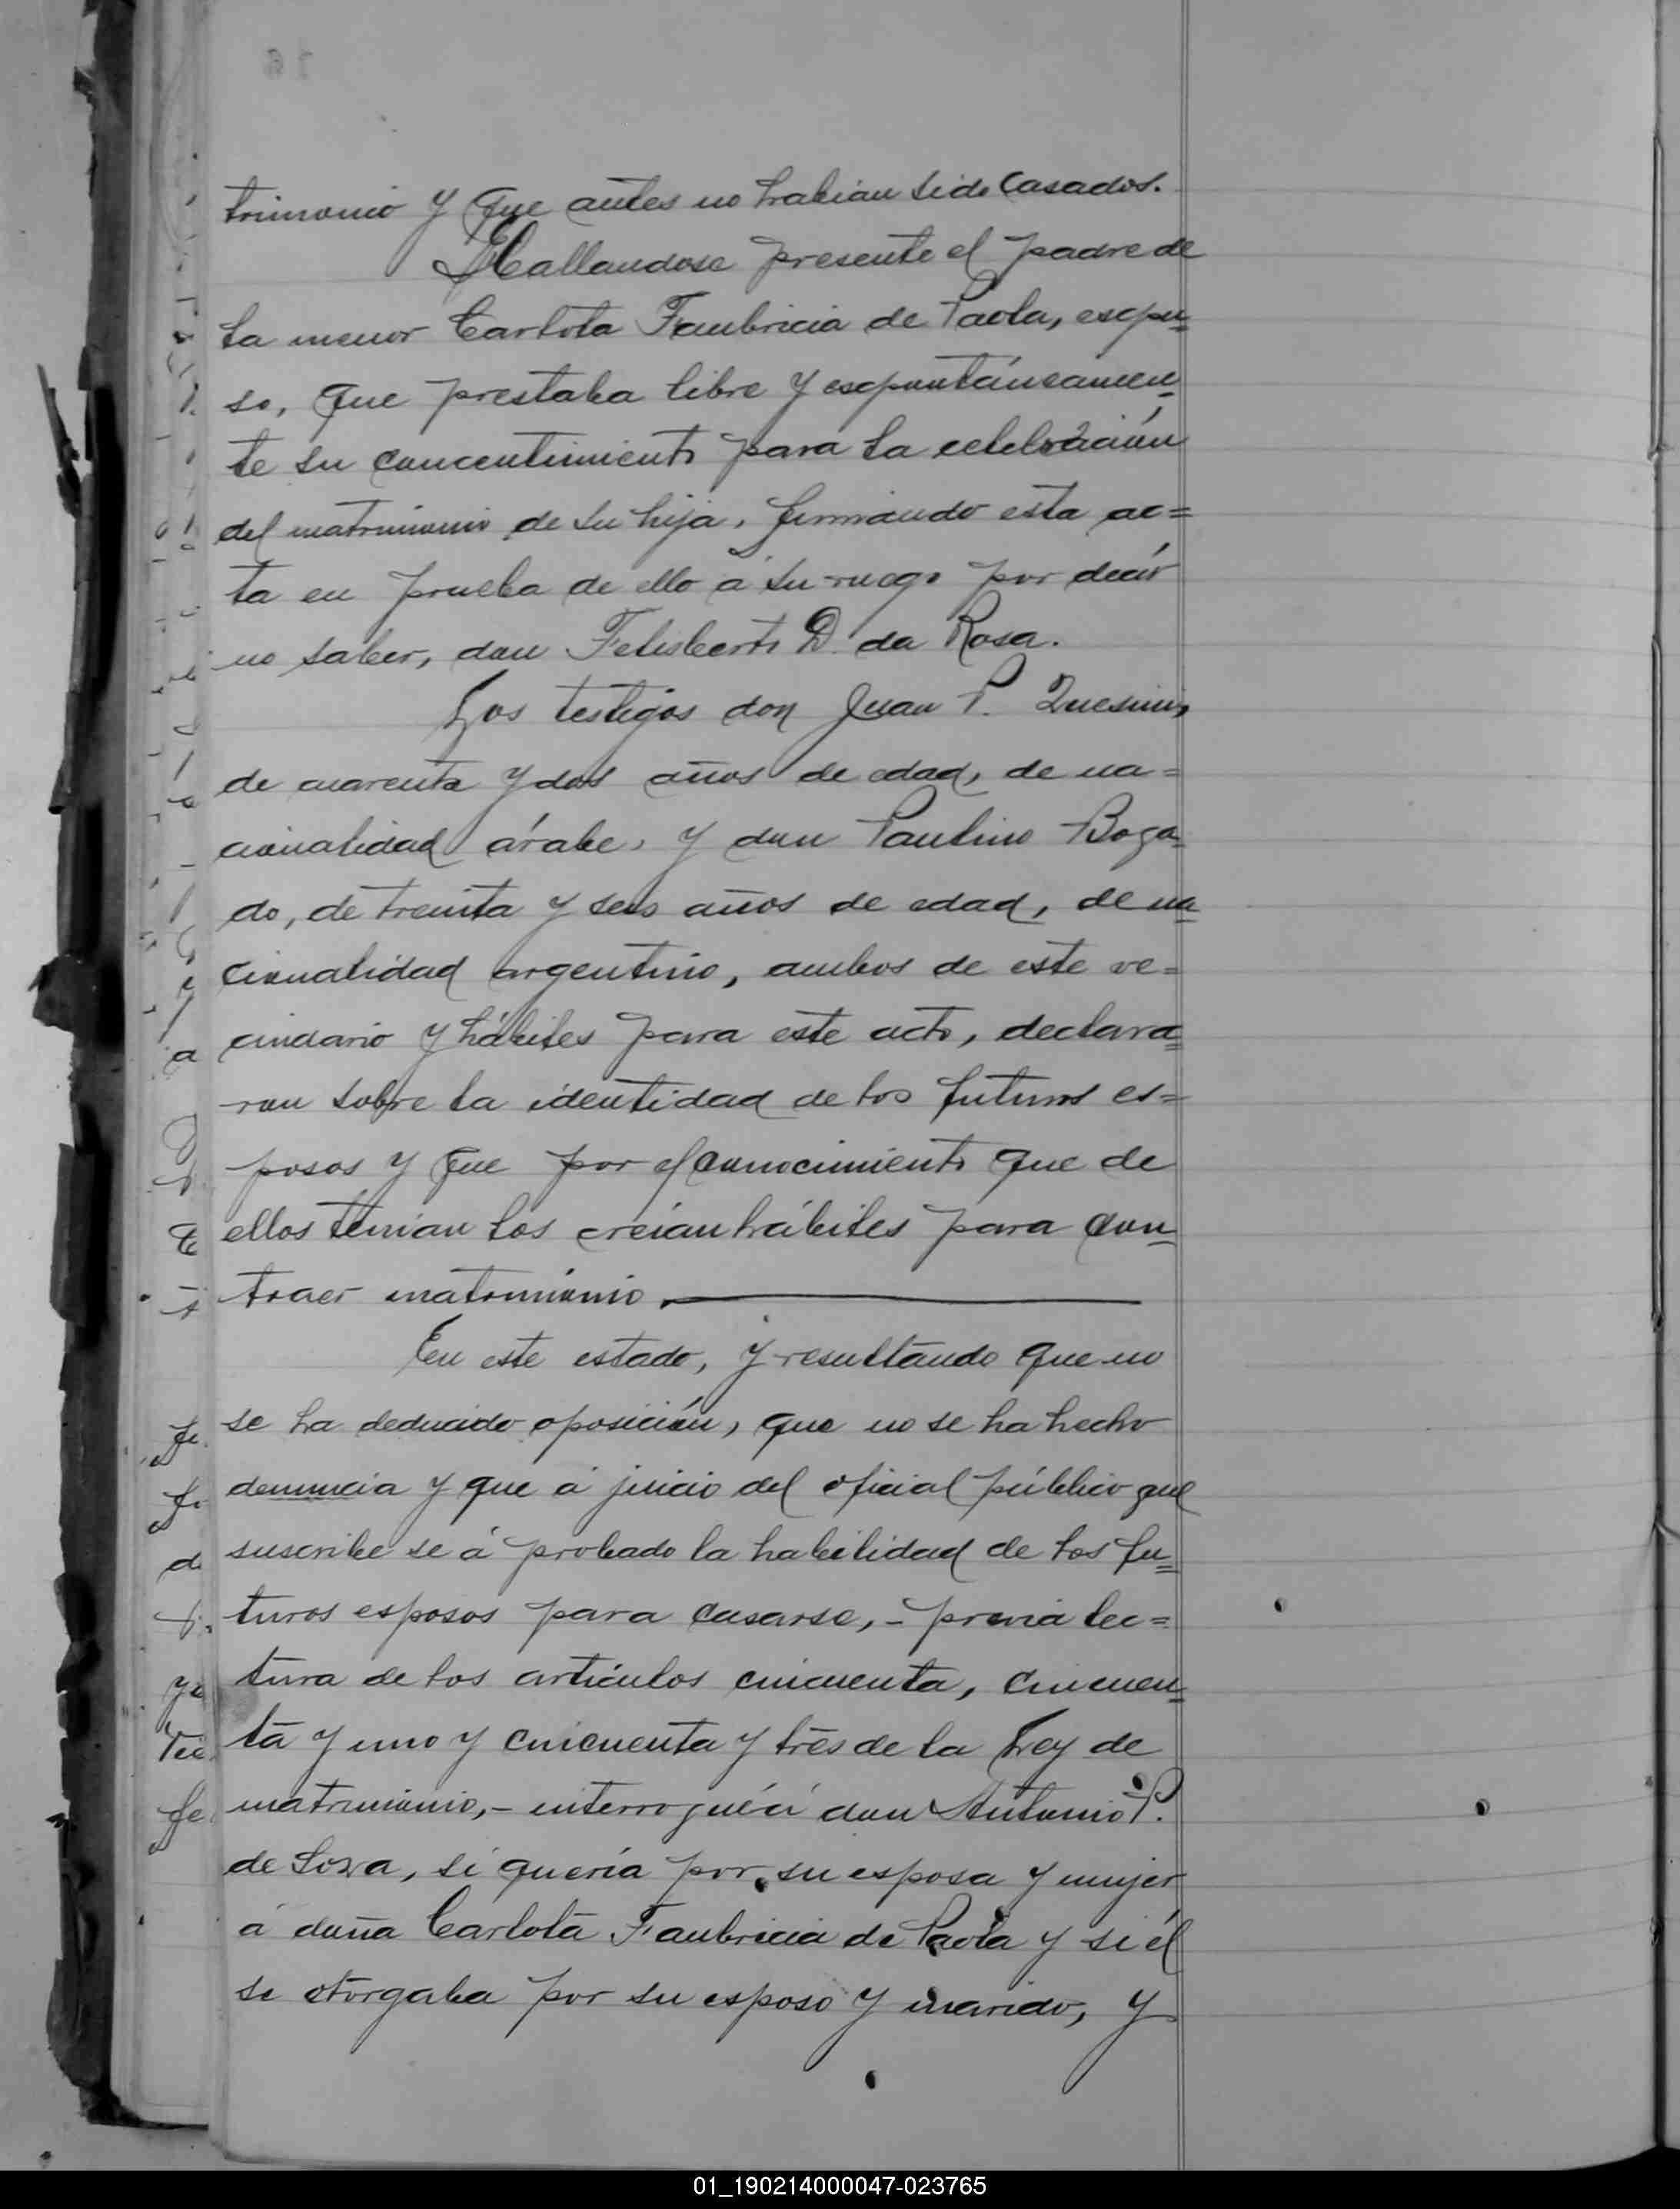 trimonio y que antes no habian sido casados.
Hallandose presente el padre de
la menor Carlota Faubricia de Paola, espu=
so, que prestaba libre y espontáneamen=
te su concentimiento para la celebración
del matrimonio de su hija, firmando esta ac=
ta en prueba de ello á su ruego por decir
no saber, don Felisberto D. da Rosa.
Los testigos don Juan P.
de cuarenta y dos años de edad, de na=
cionalidad árabe, y don Paulino Boga=
do, de treinta y seis años de edad, de na=
cionalidad argentino, ambos de este ve=
cindario y hábiles para este acto, declara=
ron sobre la identidad de los futuros es=
posos y que por el conocimiento que de
ellos tenían los creían hábiles para con=
traer matrimonio
En este estado, y resultando que no
se ha deducido oposición, que no se ha hecho
denuncia y que á juicio del oficial público que
suscribe se á probado la habilidad de los fu=
turos esposos para casarse, - previa lec=
tura de los artículos cincuenta, cincuen=
ta y uno y cincuenta y tres de la Ley de
matrimonio, - interrogué á don Antonio P.
de Soza, si quería por su esposa y mujer
á doña Carlota Faubricia de Paola y si él
se otorgaba por su esposo y marido, y
01_190214000047-023765